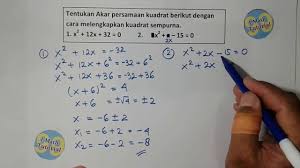 Tentukan Akar persamaan kuadrat berikut dengan
cara melengkapkan kuadrat sempurna.
1. x² + 12x + 32 = 0
2. x² + 2x - 15 = 0
① x² + 12x = -32
x² + 12x + 6² = -32 + 6²
x² + 12x + 36 = -32 + 36
(x + 6)² = 4
x + 6 = ±√4 = ±2
x₁ = -6 + 2 = -4
x₂ = -6 - 2 = -8
② x² + 2x - 15 = 0
x² + 2x